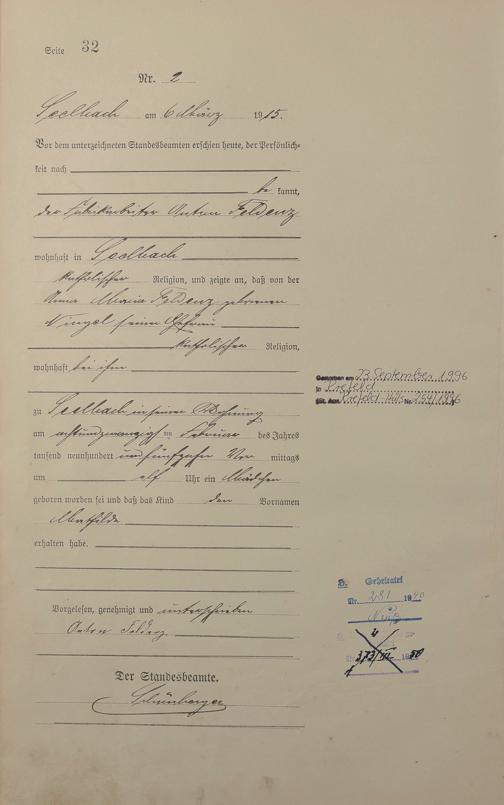 Seite 32
Nr. 2
Seelbach am 6 März 1915.
Vor dem unterzeichneten Standesbeamten erschien heute, der Persönlich-
keit nach
be kannt,
der Fabrikarbeiter Anton Feldenz
wohnhaft in Seelbach
katholischer Religion, und zeigte an, daß von der
Anna Maria Feldenz geborenen
seiner Ehefrau
katholischer Religion,
wohnhaft bei ihm
zu Seelbach in seiner Wohnung
am achtundzwanzigsten Februar des Jahres
tausend neunhundert und fünfzehn Vor mittags
um elf Uhr ein Mädchen
geboren worden sei und daß das Kind den Vornamen
Mathilde
erhalten habe.
Vorgelesen, genehmigt und unterschrieben
Anton
Der Standesbeamte.
Gestorben am 23 September 1996
in Krefeld
Krefeld Nr. 1541/1996
Geheiratet
Nr. 281 1940
Neuß